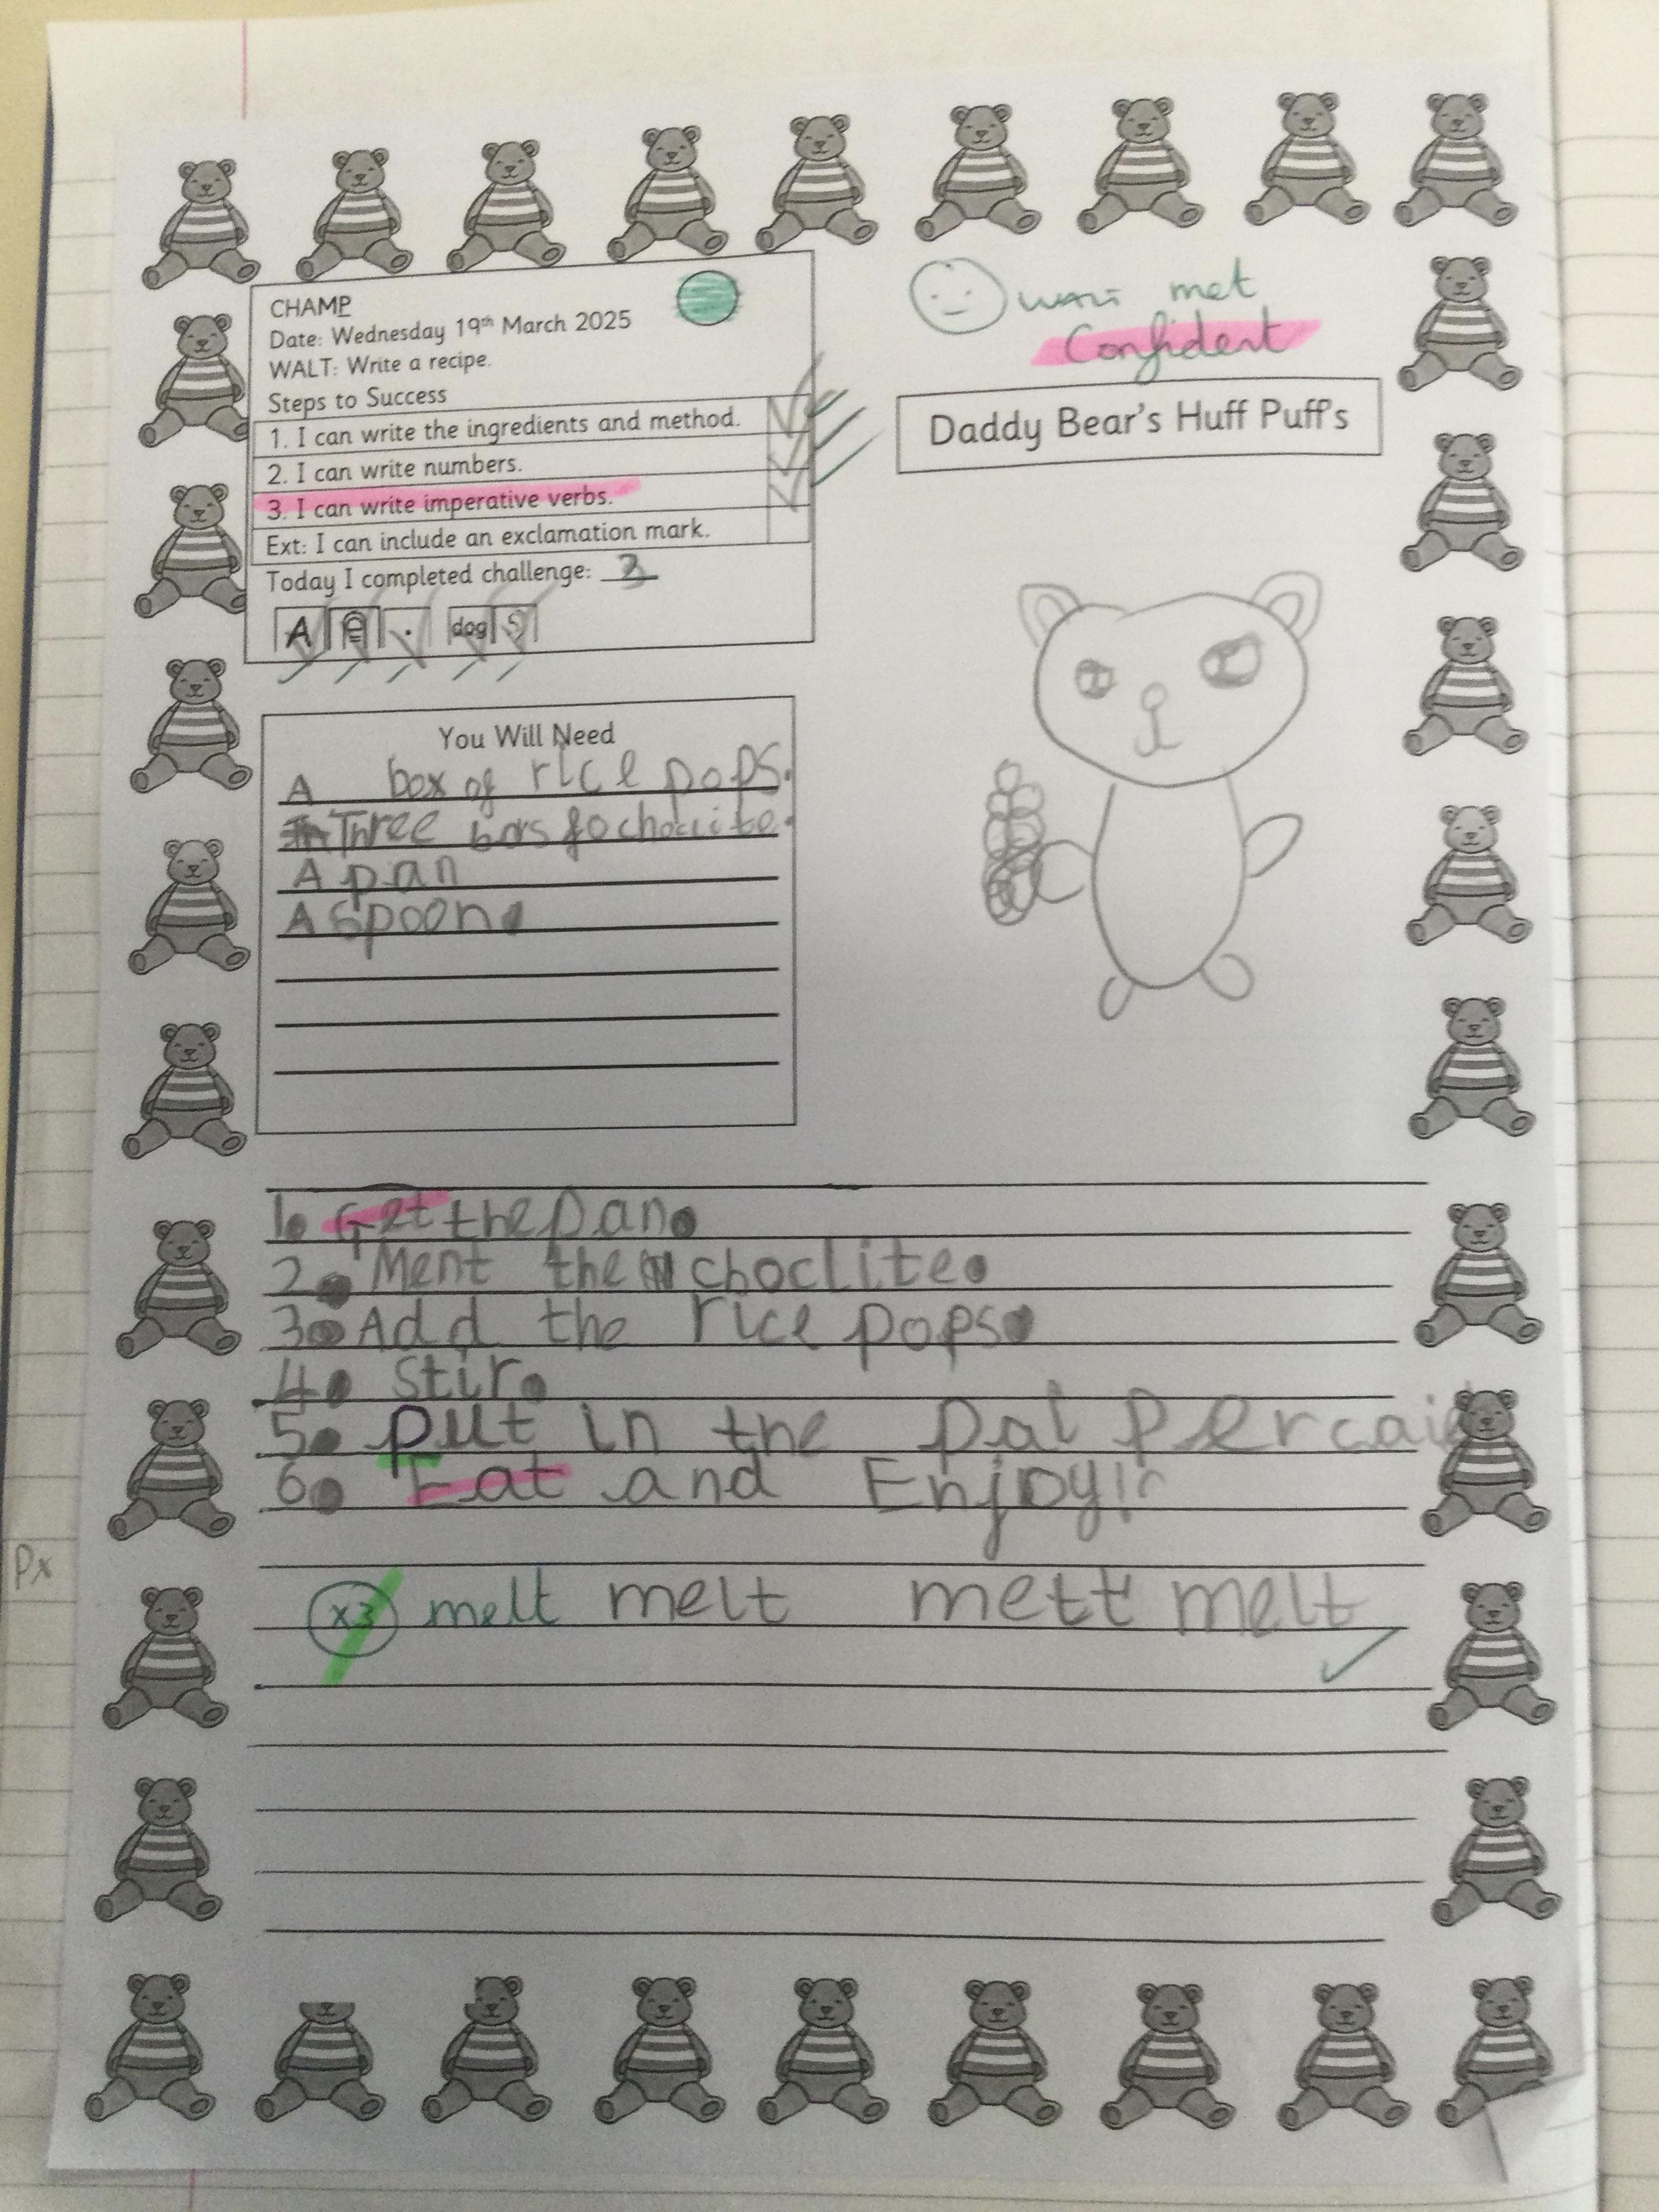 CHAMP
Date: Wednesday 19th March 2025
WALT: Write a recipe.
Steps to Success
1. I can write the ingredients and method.
2. I can write numbers.
3. I can write imperative verbs.
Ext: I can include an exclamation mark.
Today I completed challenge: 3
A . dog S
WALT met
Confident
Daddy Bear's Huff Puff's
You Will Need
A box of rice pops.
Three bars fo choclite.
A pan
A spoon.
1. Get the pan.
2. Ment the choclite.
3. Add the rice pops.
4. Stir.
5. put in the pal percai
6. Eat and Enjoy!
x3 melt melt mett melt
Px